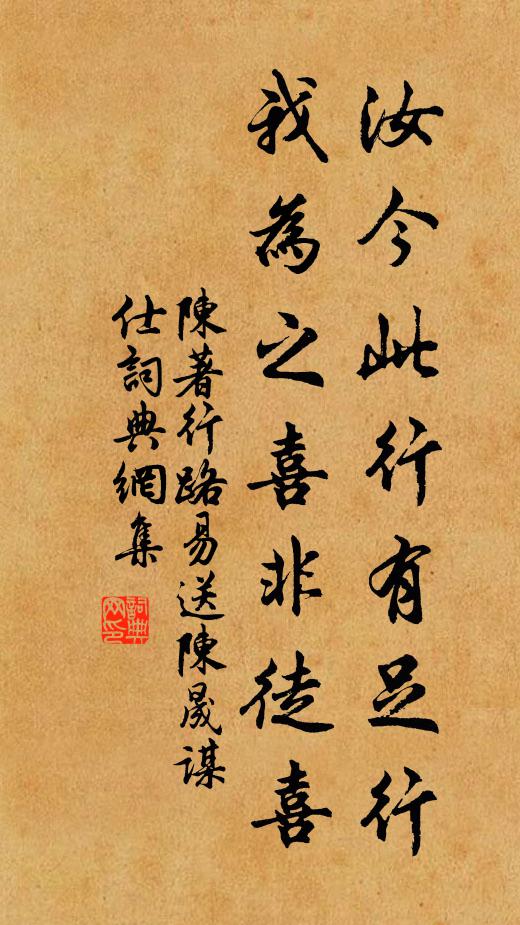 汝今此行有足行
我為之喜非徒喜
陳著行路易送陳晟謀
仕詞典網集
詞典
网印